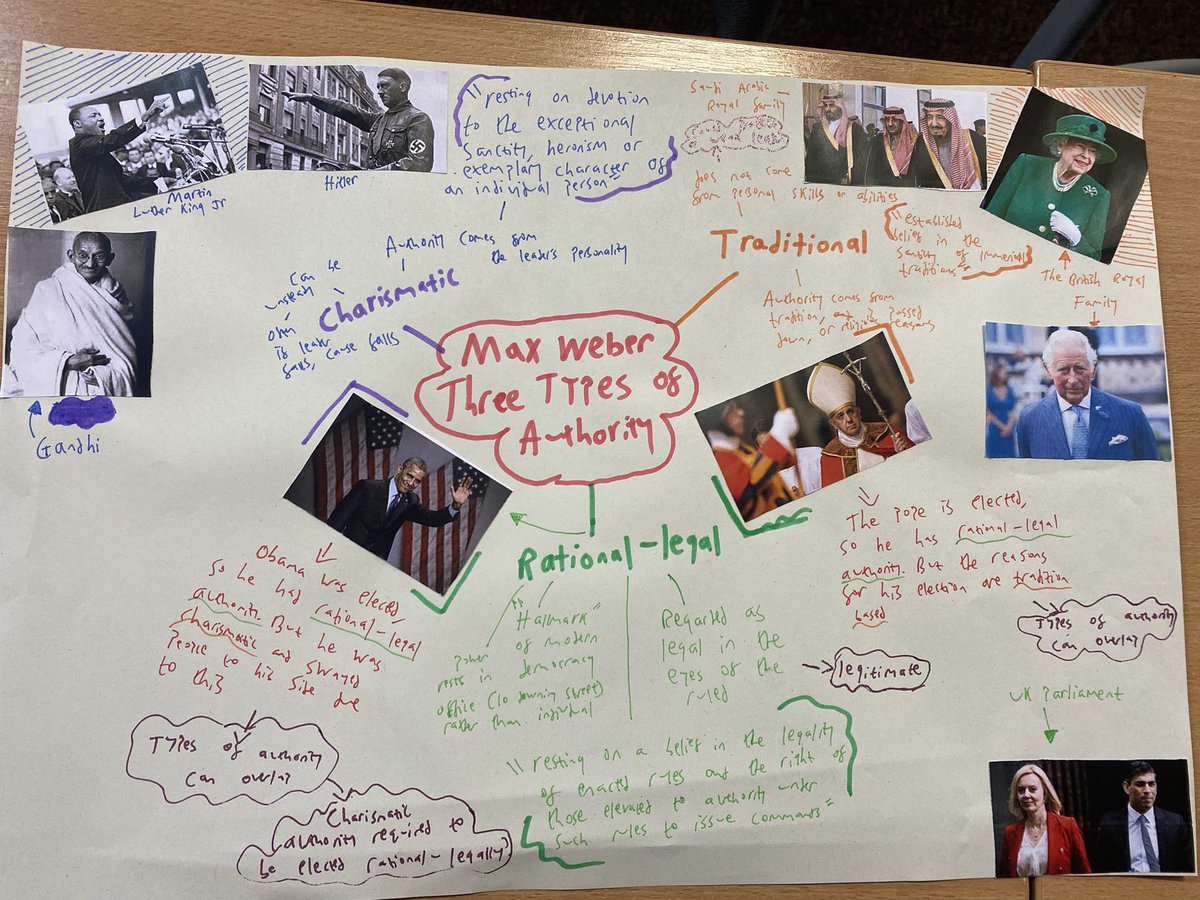 Max Weber
Three Types of
Authority
Martin
Luther King Jr
Hitler
Gandhi
"resting on devotion
to the exceptional
Sanctity, heroism or
exemplary character of
an individual person"
Authority comes from
the leader's personality
Charismatic
Can be
often
is leader
fails, cause falls
Saudi Arabia
Royal family
does not come
from personal skills or abilities
Traditional
"established
belief in the
Sanctity of immemial
traditions"
Authority comes from
tradition, passed
down, or religious reasons
The British Royal
Family
Obama was elected,
so he had rational-legal
authority. But he was
charismatic and swayed
People to his side due
to this
Types of authority
can overlap
Charismatic
authority required to
be elected rational-legally
Rational-legal
"Hallmark"
of modern
democracy
Power
rests in
office (10 downing street)
rather than individual
Regarded as
legal in the
eyes of the
ruled
legitimate
"resting on a belief in the legality
of enacted rules and the right of
those elevated to authority under
such rules to issue commands"
The Pope is elected,
so he has rational-legal
authority. But the reasons
for his election are tradition
based
Types of authority
can overlap
UK Parliament